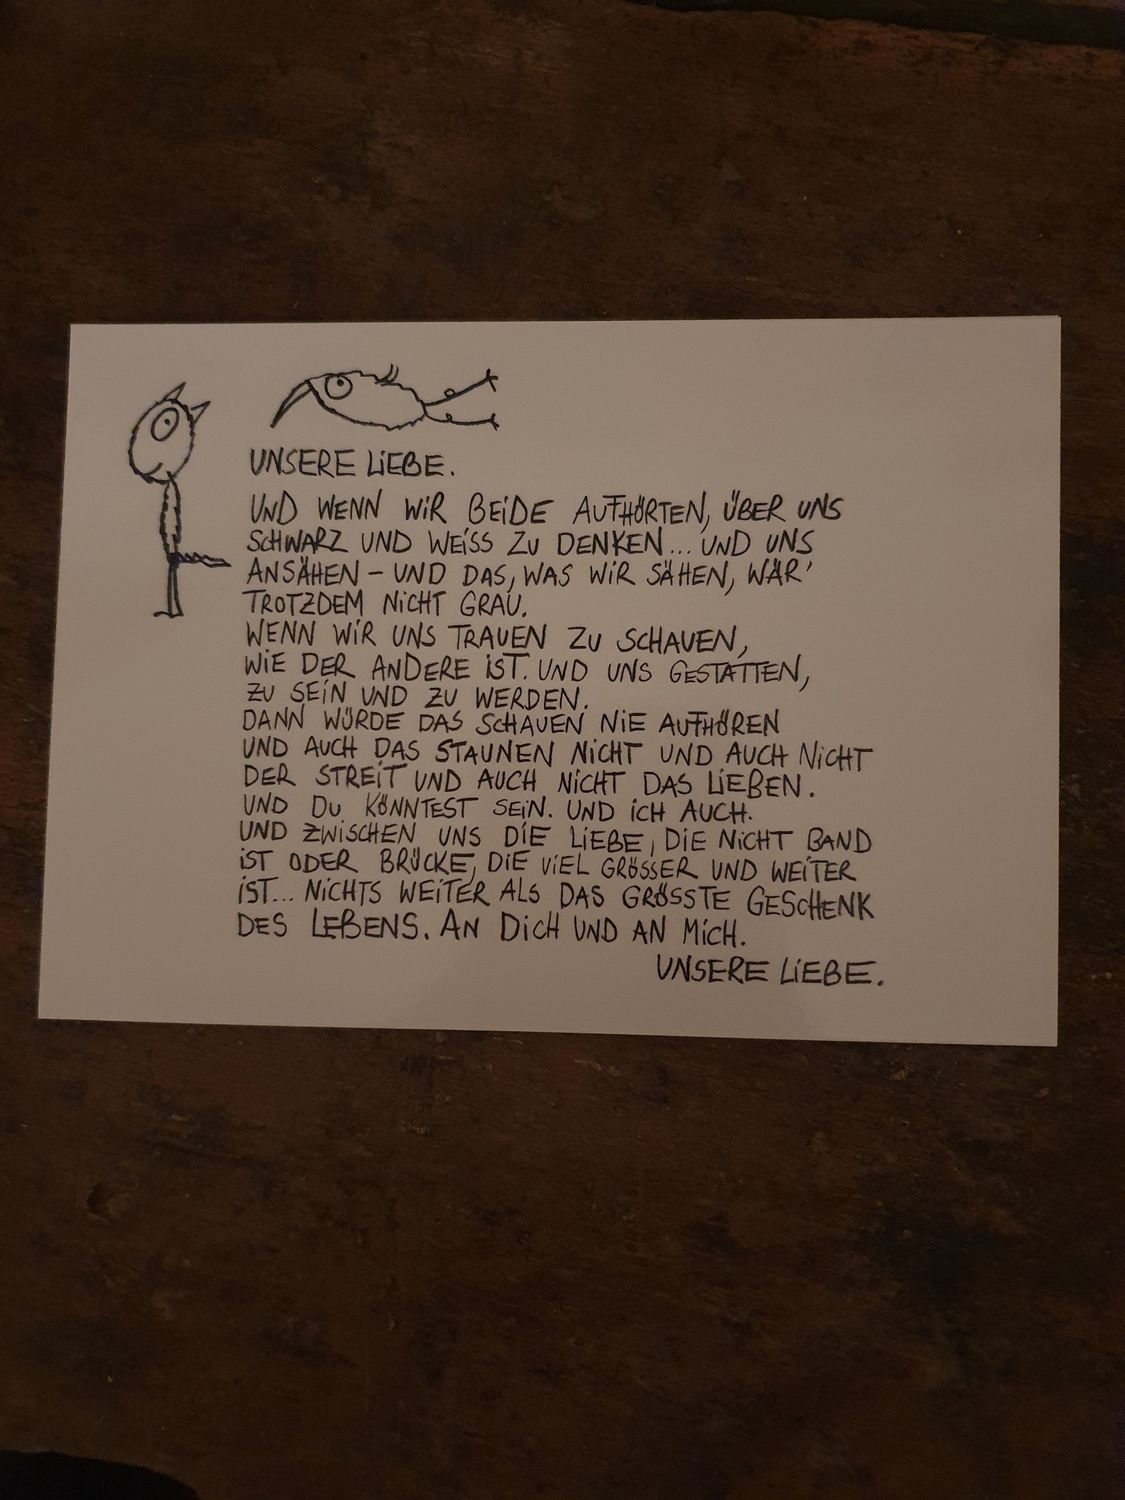 UNSERE LiEBE.
UND WENN WiR BEiDE AUFHÖRTEN, ÜBER UNS
SCHWARZ UND WEiSS ZU DENKEN... UND UNS
ANSÄHEN – UND DAS, WAS WiR SÄHEN, WÄR'
TROTZDEM NiCHT GRAU.
WENN WiR UNS TRAUEN ZU SCHAUEN,
WiE DER ANDERE iST. UND UNS GESTATTEN,
ZU SEiN UND ZU WERDEN.
DANN WÜRDE DAS SCHAUEN NiE AUFHÖREN
UND AUCH DAS STAUNEN NiCHT UND AUCH NiCHT
DER STREiT UND AUCH NiCHT DAS LiEBEN.
UND DU KÖNNTEST SEiN. UND iCH AUCH.
UND ZWiSCHEN UNS DiE LiEBE, DiE NiCHT BAND
iST ODER BRÜCKE, DiE ViEL GRÖSSER UND WEiTER
iST... NiCHTS WEiTER ALS DAS GRÖSSTE GESCHENK
DES LEBENS. AN DiCH UND AN MiCH.
UNSERE LiEBE.